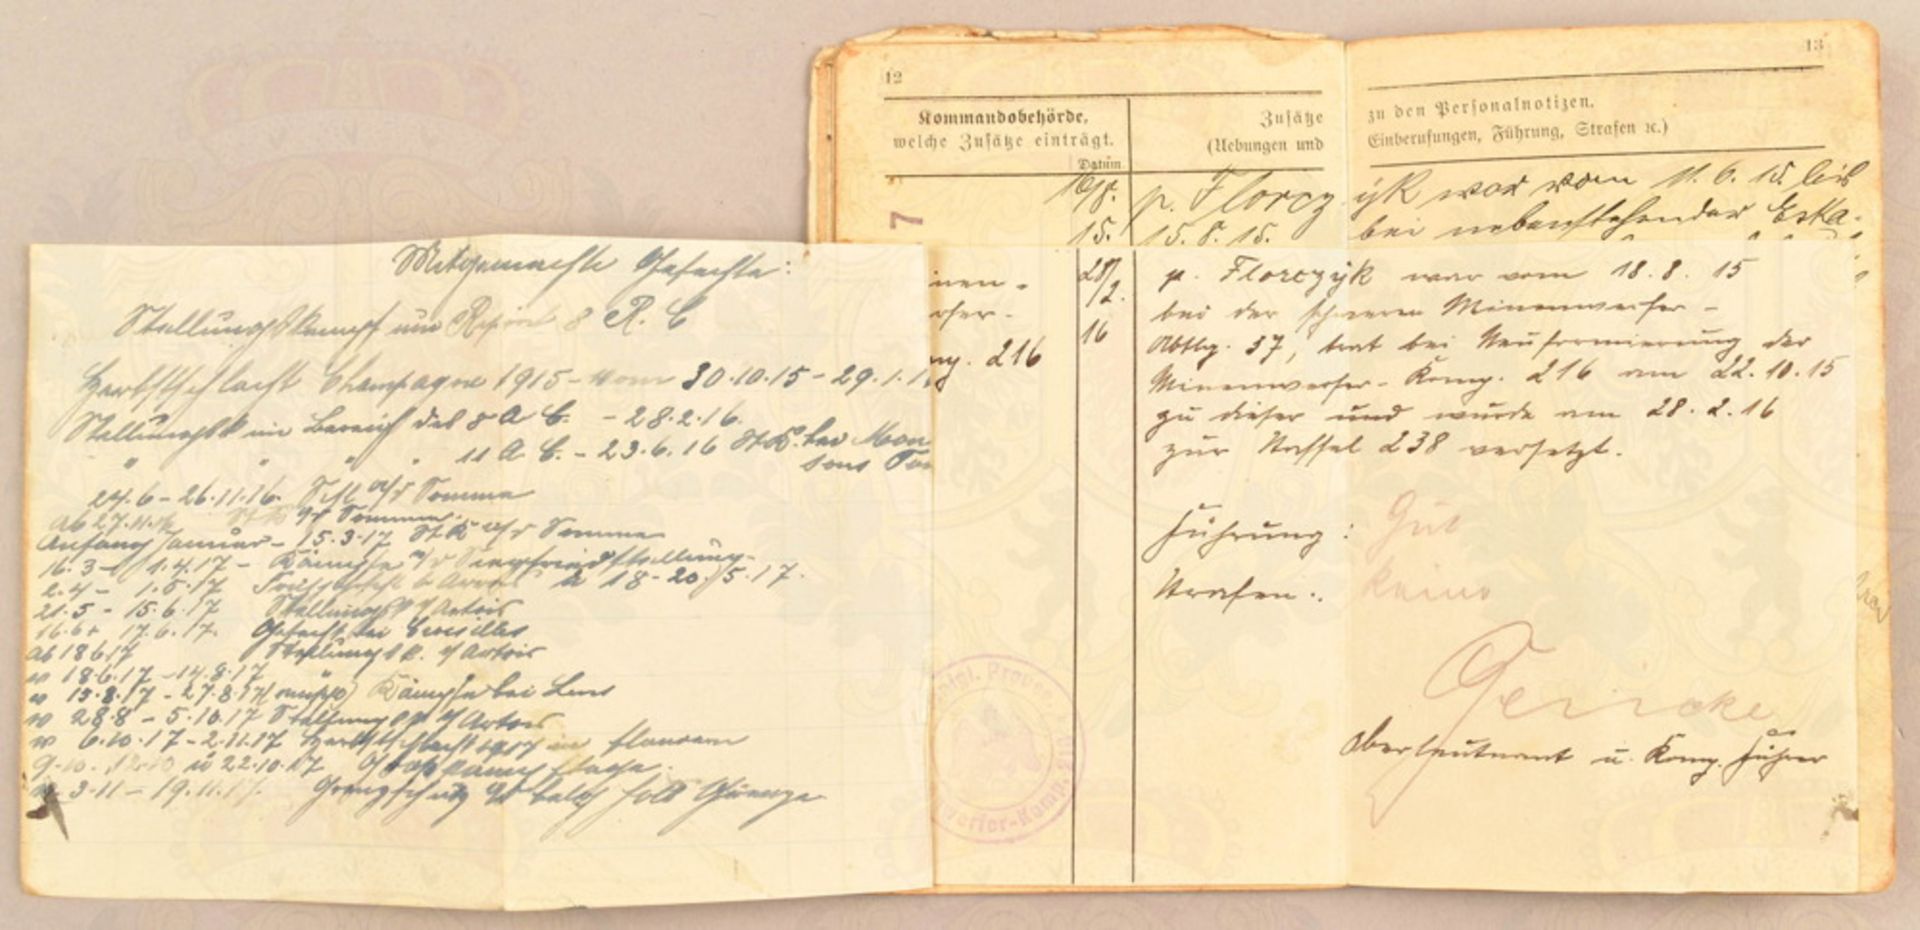 Mitgemachte Gefechte:
Stellungskampf um 8 R. C
Herbstschlacht Champagne 1915 - vom 30.10.15 - 29.1.1
Stellungsk im Bereich des 8 A C. - 28.2.16.
" " " " 11 A C. - 23.6.16 bei Mon
24.6 - 26.11.16. a/d Somme
Ab 27.11.16 Somme.
Anfang Januar - 15.3.17 St K a/d Somme
16.3 - 1.4.17 - Kämpfe a/d Siegfriedstellung
2.4 - 1.5.17 b Arras u 18-20.5.17.
21.5 - 15.6.17 Stellungsk Artois
16.6 + 17.6.17. Gefecht bei
Ab 18617 Stellungsk. Artois
" 18.6.17 - 14.8.17
" 15.8.17 - 27.8.17 Kämpfe bei Lens
" 28.8 - 5.10.17 Stellungsk Artois
" 6.10.17 - 2.11.17 Herbstschlacht 1917 in Flandern
9.10. 12.10 u 22.10.17 Grosskampftage.
" 3.11 - 19.11.17. Grenzschutz belg holl Grenze
12
Kommandobehörde,
welche Zusätze einträgt.
Datum
Zusätze
(Uebungen und
13
zu den Personalnotizen.
Einberufungen, Führung, Strafen ꝛc.)
7
16/8.
15.
p. Florczyk war vom 11.6.15 bis
15.8.15. bei nebenstehender Eska-
inen-
rfer-
mp. 216
28/
2.
16
p. Florczyk war vom 18.8.15
bei der schweren Minenwerfer-
Abtlg. 37, trat bei Neuformierung der
Minenwerfer-Komp. 216 am 22.10.15
zu dieser und wurde am 28.2.16
zur Staffel 238 versetzt.
Führung: Gut
Strafen: Keine
Gericke
Oberleutnant u. Komp. Führer